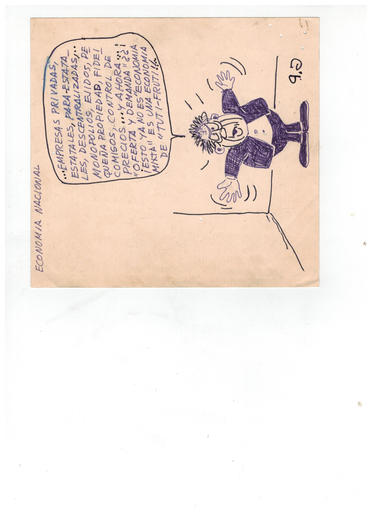 ECONOMIA NACIONAL
...EMPRESAS PRIVADAS,
ESTATALES, PARA-ESTATA-
LES, DESCENTRALIZADAS,...
MONOPOLIOS, EJIDOS, PE-
QUEÑA PROPIEDAD, FIDEI
COMISOS, CONTROL DE
PRECIOS.... Y AHORA...¡
"OFERTA Y DEMANDA"???
¡ESTO YA NO ES "ECONOMIA
MIXTA" ES UNA ECONOMIA
DE "TUTI-FRUTI"!!